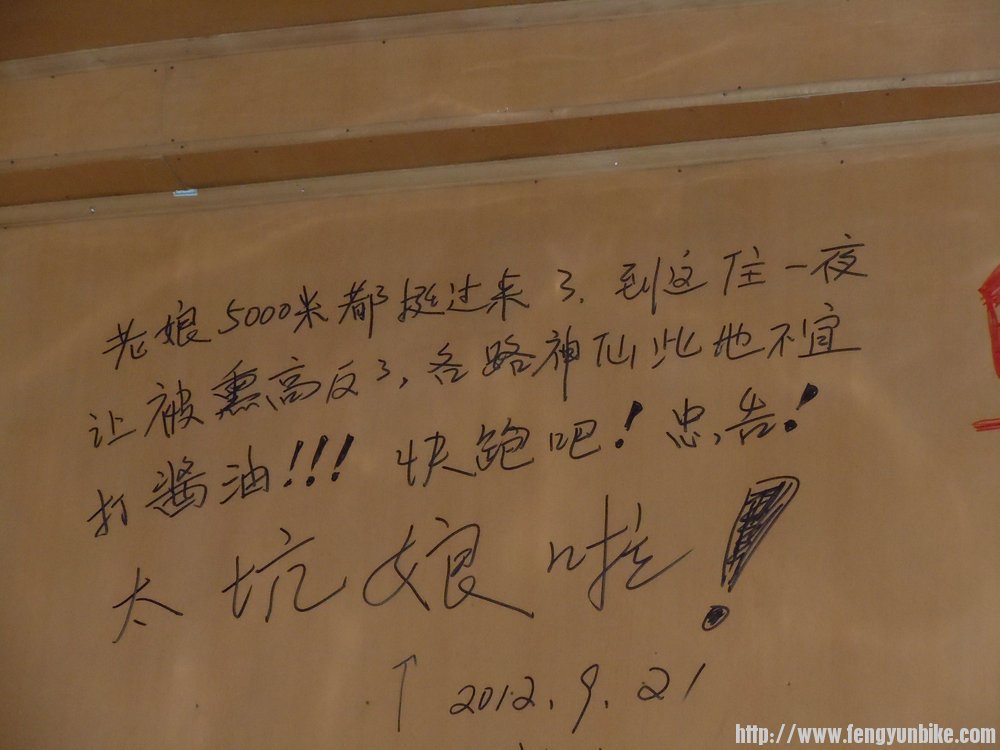 老娘5000米都挺过来了.到这住一夜
让被熏高反了,各路神仙此地不宜
打酱油!!!快跑吧!忠告!
太坑娘啦!
↑ 2012.9.21
http://www.fengyunbike.com